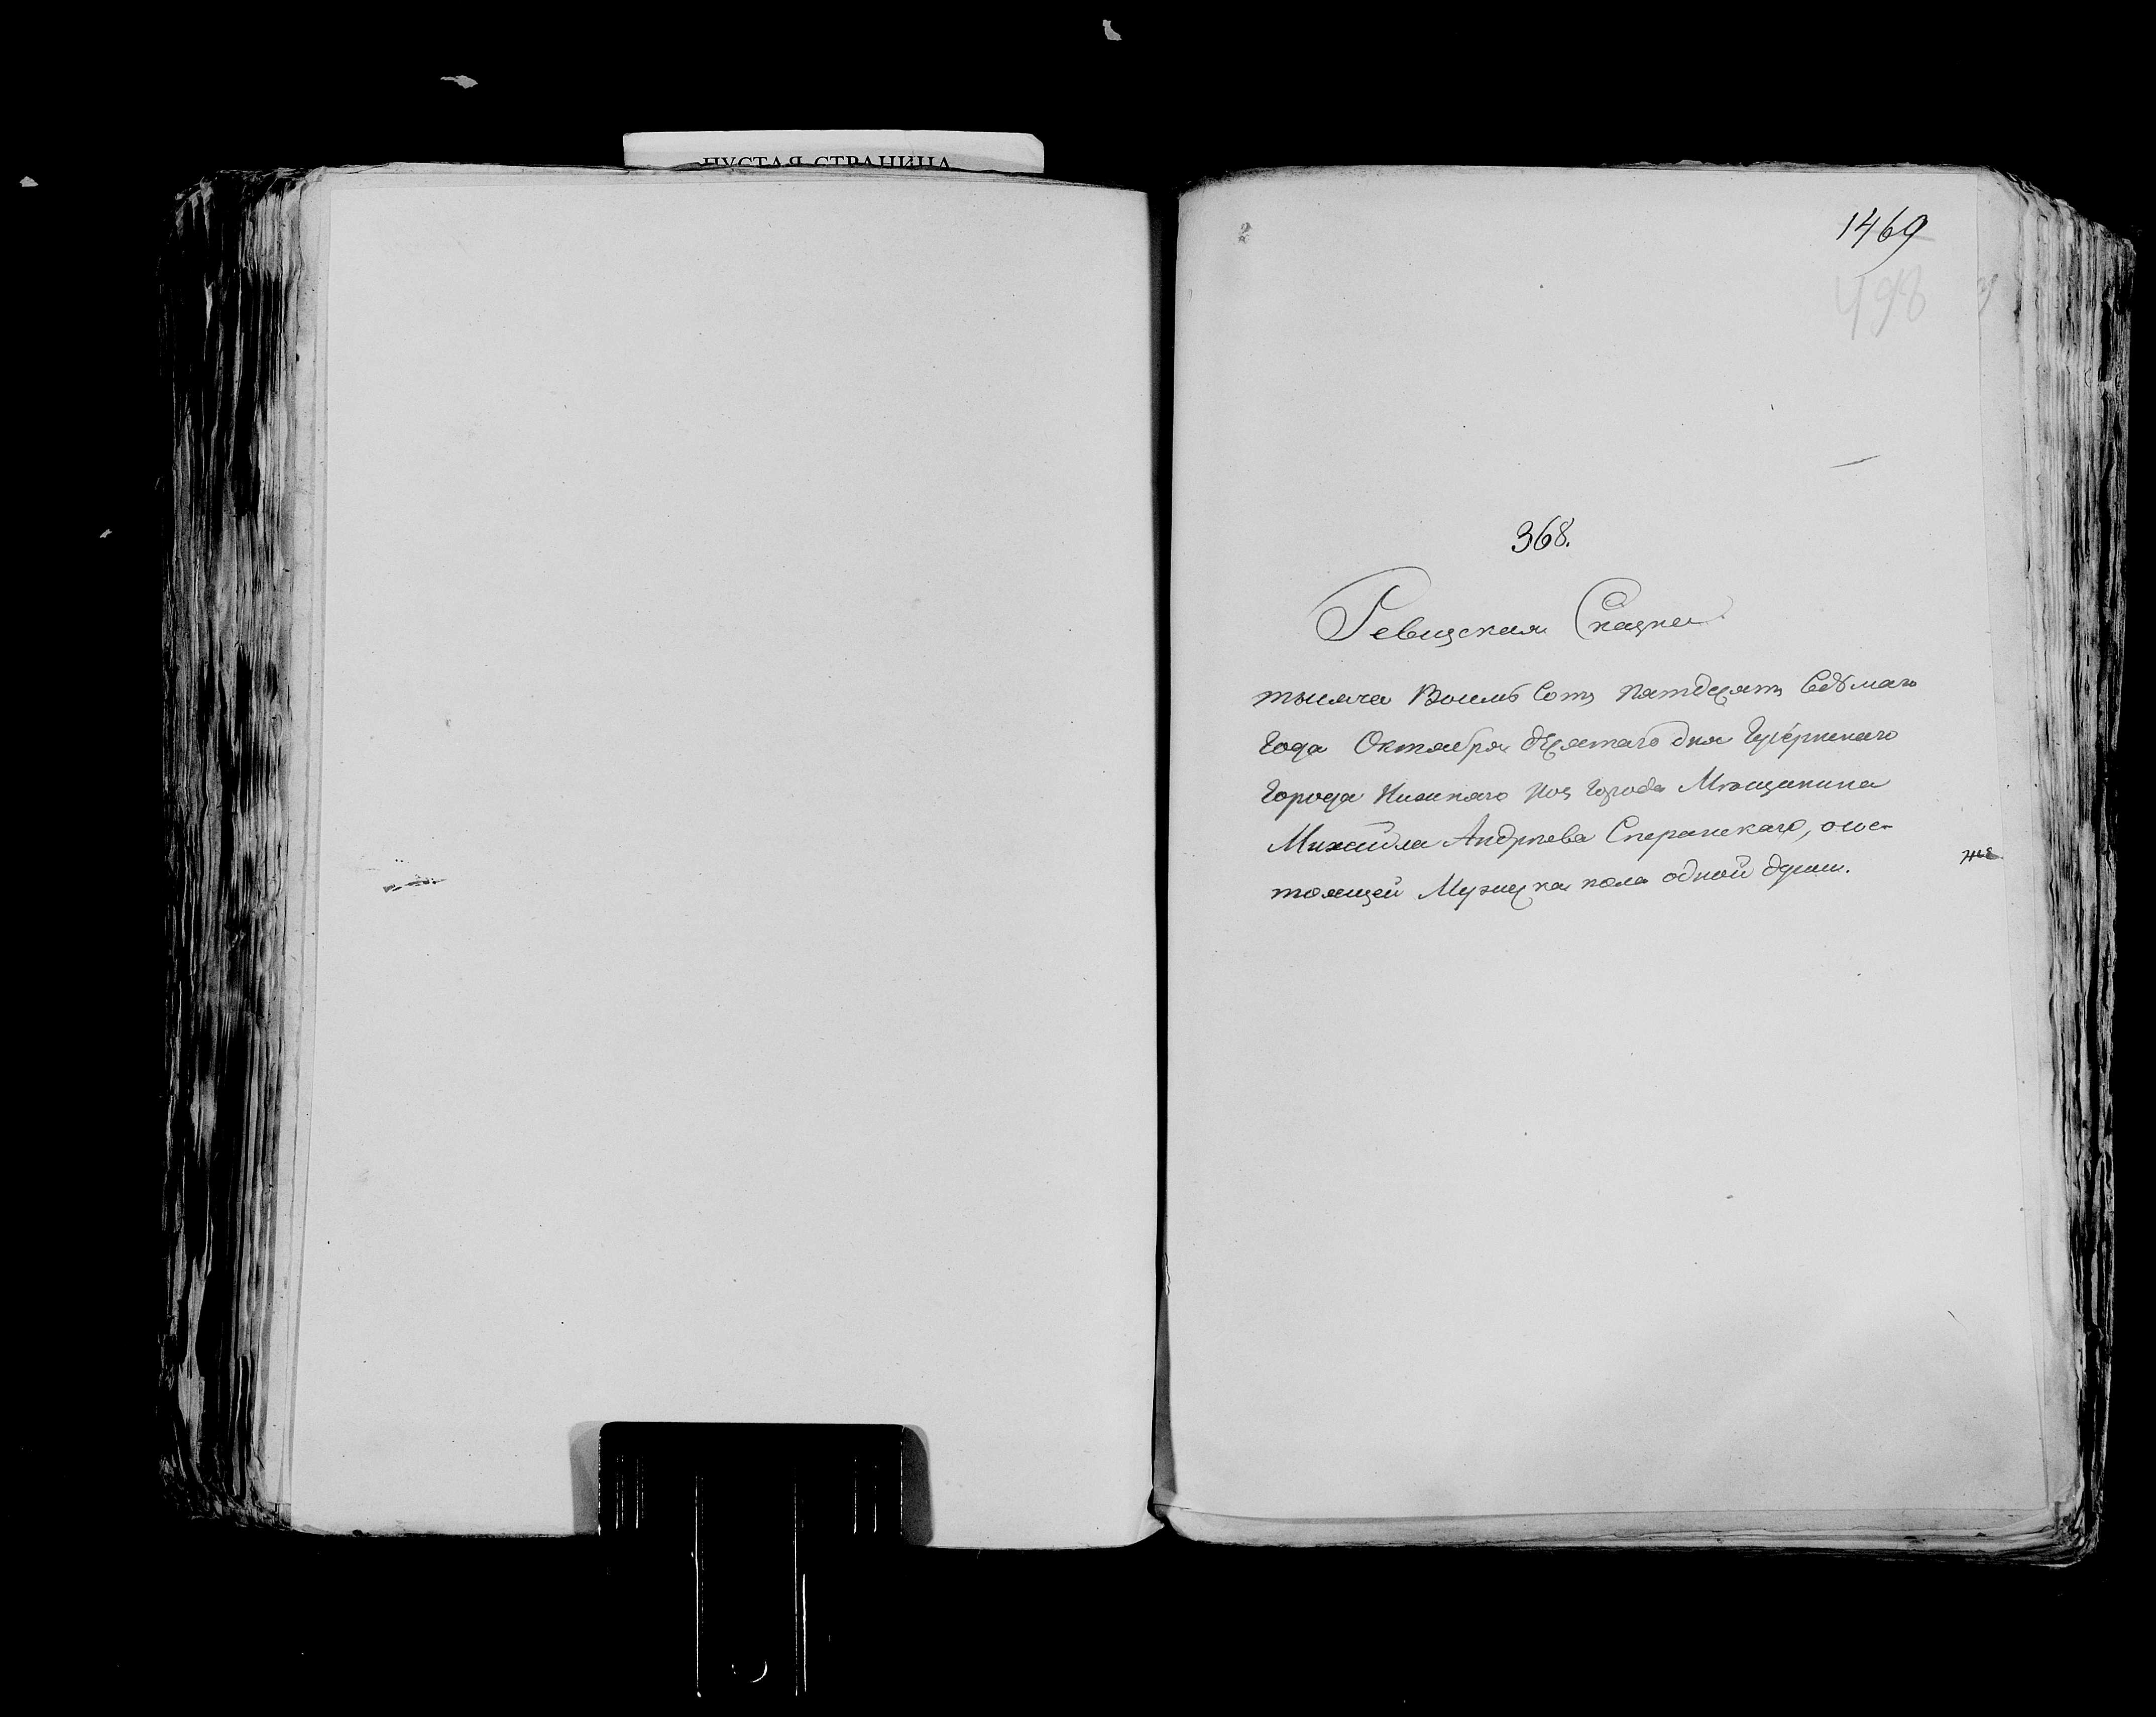 ПУСТАЯ СТРАНИЦА
1469
498
368.
Ревизская Сказка
тысяча Восемь Сотъ пятдесятъ Седьмаго
Года Октября десятаго дня Губернскаго
Города Нижняго Нов Города Мѣщанина
Михайла Андреева Сперанскаго, о сос-
тоящей Мужеска пола одной души.